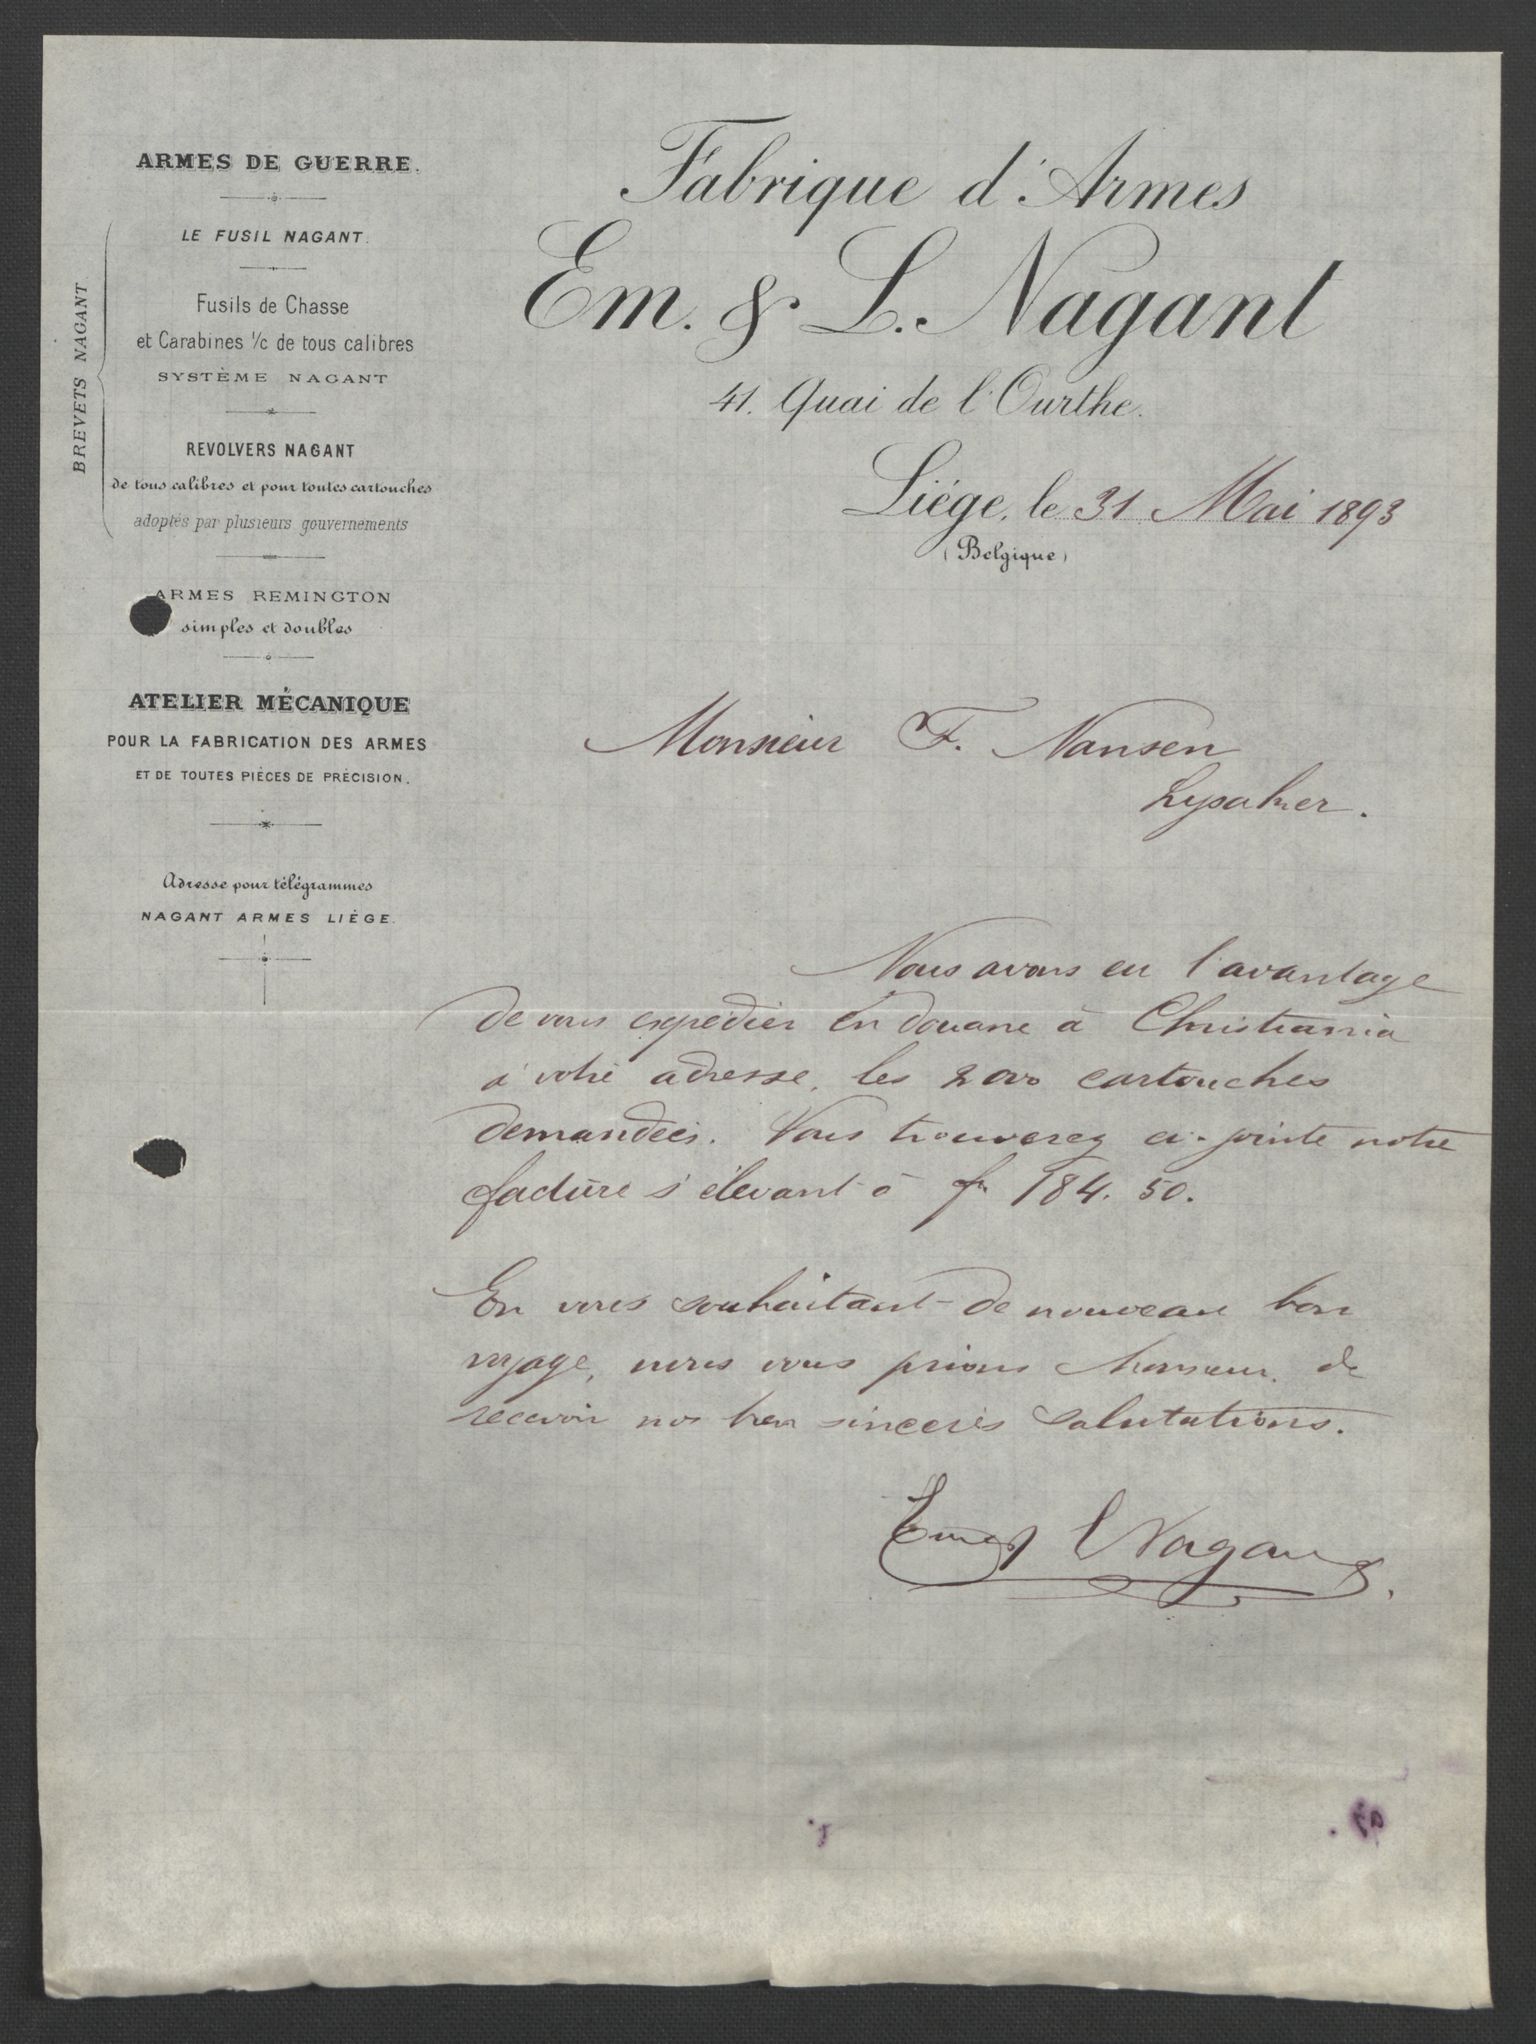 ARMES DE GUERRE.
LE FUSIL NAGANT.
Fusils de Chasse
et Carabines 1/c de tous calibres
SYSTÈME NAGANT
REVOLVERS NAGANT
de tous calibres et pour toutes cartouches
adoptés par plusieurs gouvernements
BREVETS NAGANT
ARMES REMINGTON
simples et doubles
ATELIER MÉCANIQUE
POUR LA FABRICATION DES ARMES
ET DE TOUTES PIÈCES DE PRÉCISION.
Adresse pour télégrammes
NAGANT ARMES LIÈGE.
Fabrique d'Armes
Em. & L. Nagant
41. Quai de l'Ourthe.
Liége, le 31 Mai 1893
(Belgique)
Monsieur F. Nansen
Lysaker.
Nous avons eu l'avantage
de vous expédier en douane à Christiania
à votre adresse, les 2000 cartouches
demandées. Vous trouverez ci-jointe notre
facture s'élevant à fr 184.50.
En vous souhaitant de nouveau bon
voyage, nous vous prions Monsieur, de
recevoir nos bien sincères salutations.
Em & L Nagant